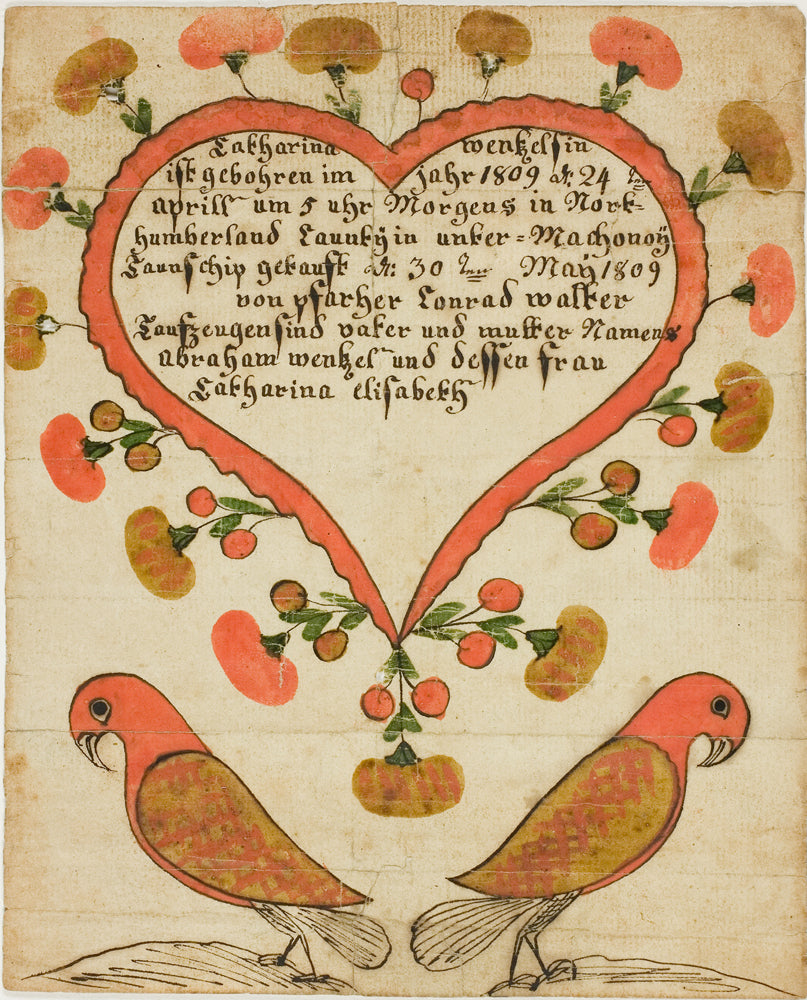 Catharina wentzelsin
ist gebohren im jahr 1809 d: 24 ten
aprill um 5 uhr Morgens in Nort-
humberland Caunty in unter=Machonoÿ
Taunschip getauft d: 30 ten May 1809
von pfarher Conrad walter
Taufzeugen sind vater und mutter Namens
abraham wentzel und dessen frau
Catharina elisabeth